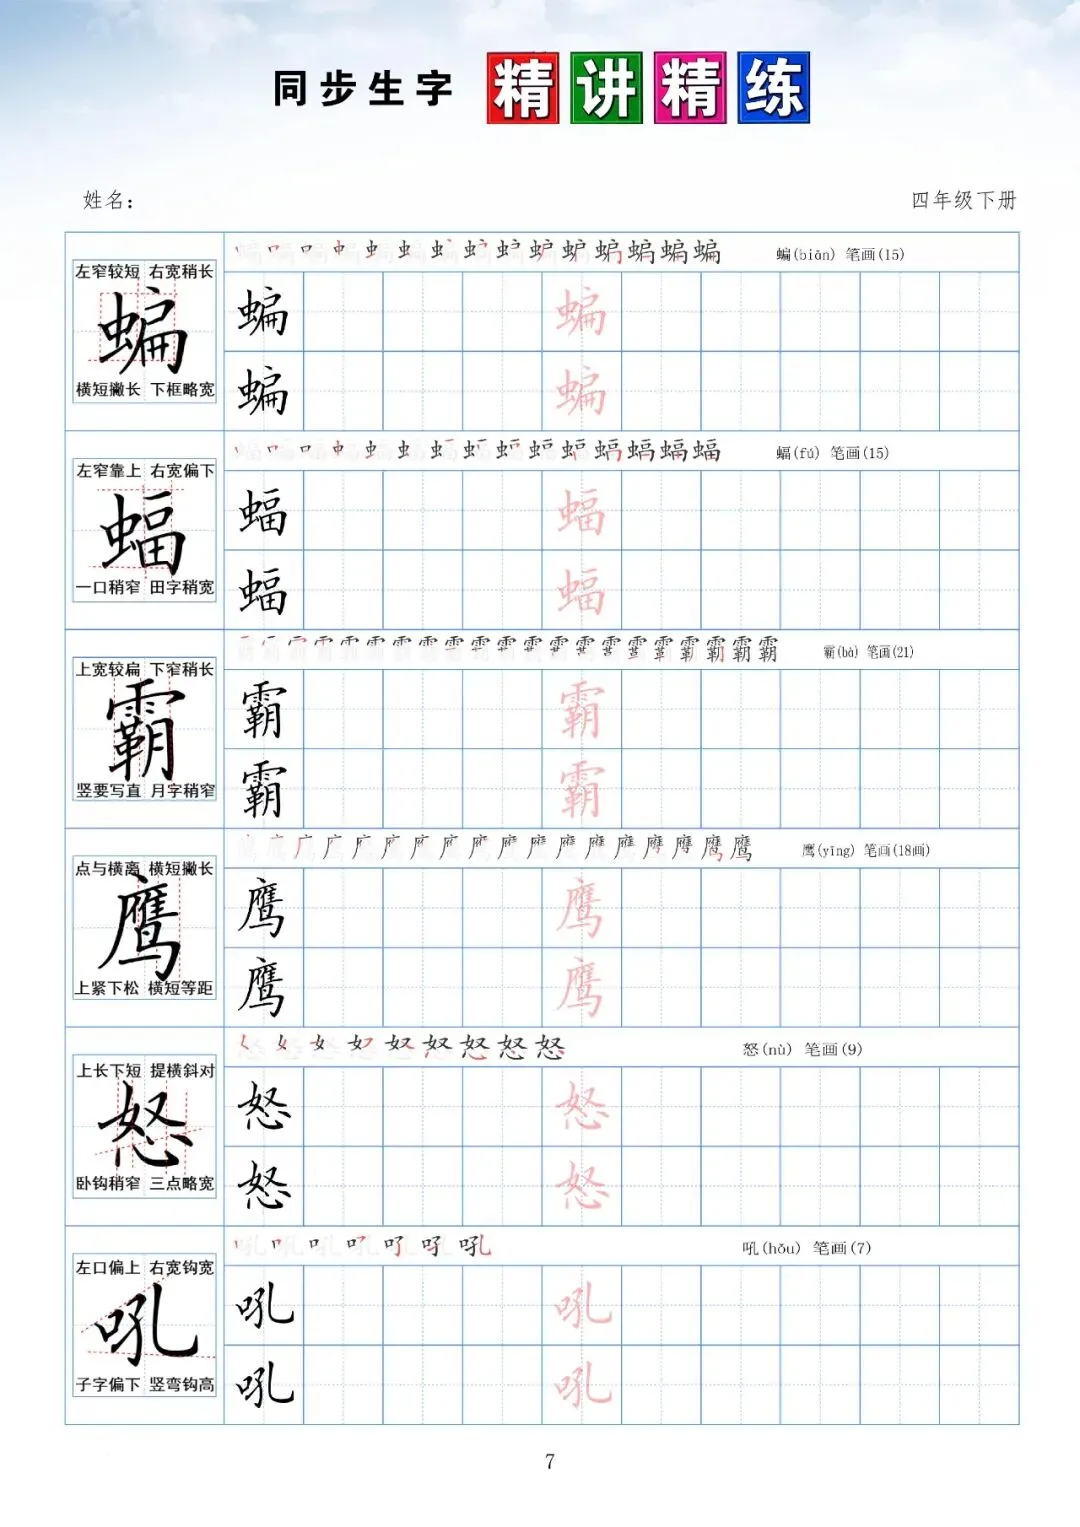 同步生字 精讲精练
姓名： 四年级下册
蝙(biān) 笔画(15)
左窄较短 右宽稍长
蝙
横短撇长 下框略宽
蝙 蝙
蝙 蝙
蝠(fú) 笔画(15)
左窄靠上 右宽偏下
蝠
一口稍窄 田字稍宽
蝠 蝠
蝠 蝠
霸(bà) 笔画(21)
上宽较扁 下窄稍长
霸
竖要写直 月字稍窄
霸 霸
霸 霸
鹰(yīng) 笔画(18画)
点与横离 横短撇长
鹰
上紧下松 横短等距
鹰 鹰
鹰 鹰
怒(nù) 笔画(9)
上长下短 提横斜对
怒
卧钩稍窄 三点略宽
怒 怒
怒 怒
吼(hǒu) 笔画(7)
左口偏上 右宽钩宽
吼
子字偏下 竖弯钩高
吼 吼
吼 吼
7